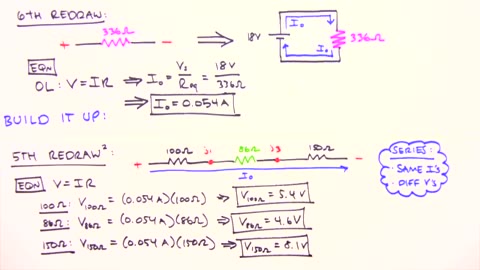 6TH REDRAW:
336Ω
+ -
18V
I₀
I₀
336Ω
EQN
OL: V=IR ⟹ I₀ = Vs/Req = 18V/336Ω
⟹ I₀=0.054A
BUILD IT UP:
5TH REDRAW²:
+ 100Ω j1 86Ω j3 150Ω -
I₀
SERIES:
· SAME I's
· DIFF V's
EQN V=IR
100Ω: V100Ω=(0.054A)(100Ω) ⟹ V100Ω = 5.4V
86Ω: V86Ω=(0.054A)(86Ω) ⟹ V86Ω = 4.6V
150Ω: V150Ω=(0.054A)(150Ω) ⟹ V150Ω = 8.1V